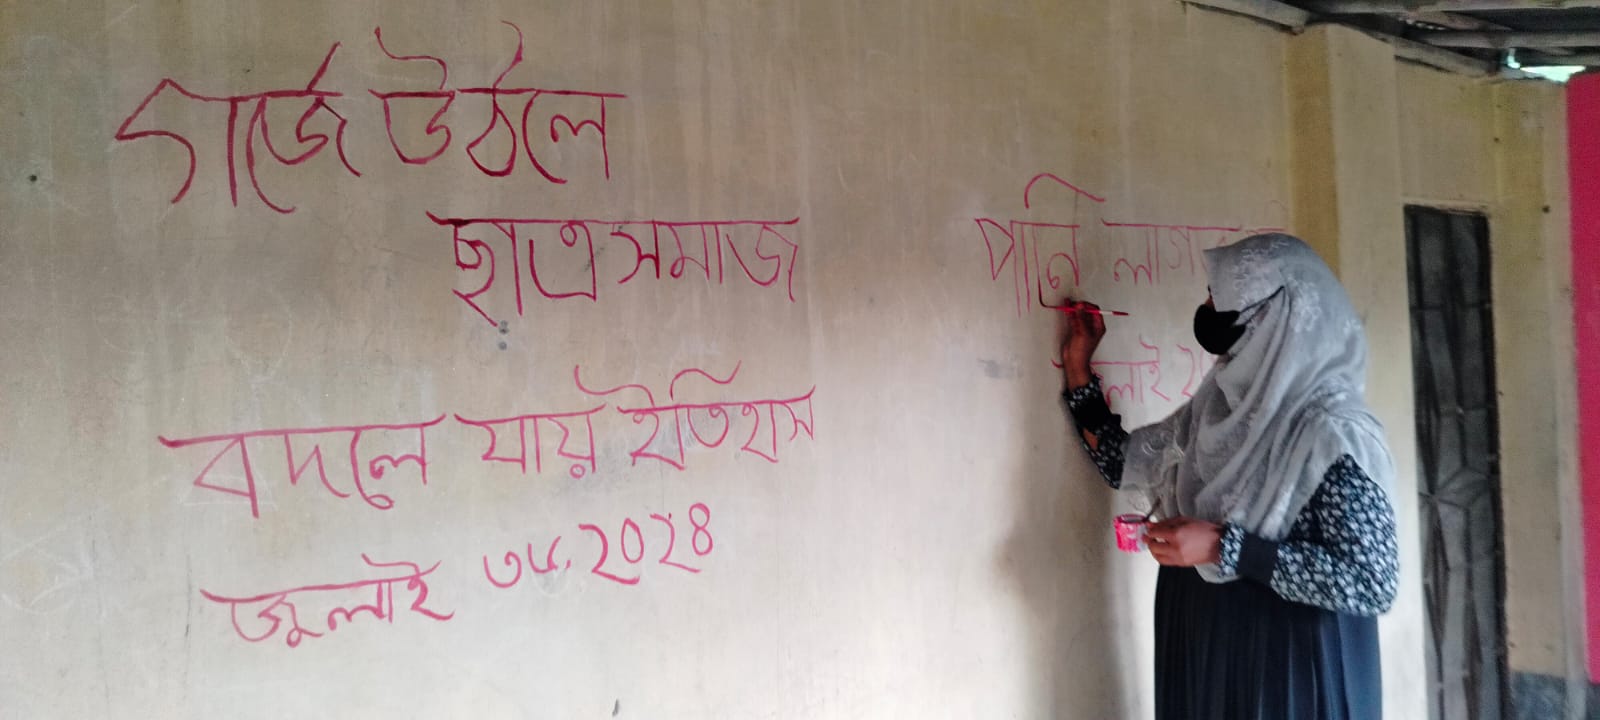 গর্জে উঠলে
ছাত্র সমাজ
বদলে যায় ইতিহাস
জুলাই ৩৬, ২০২৪
পানি